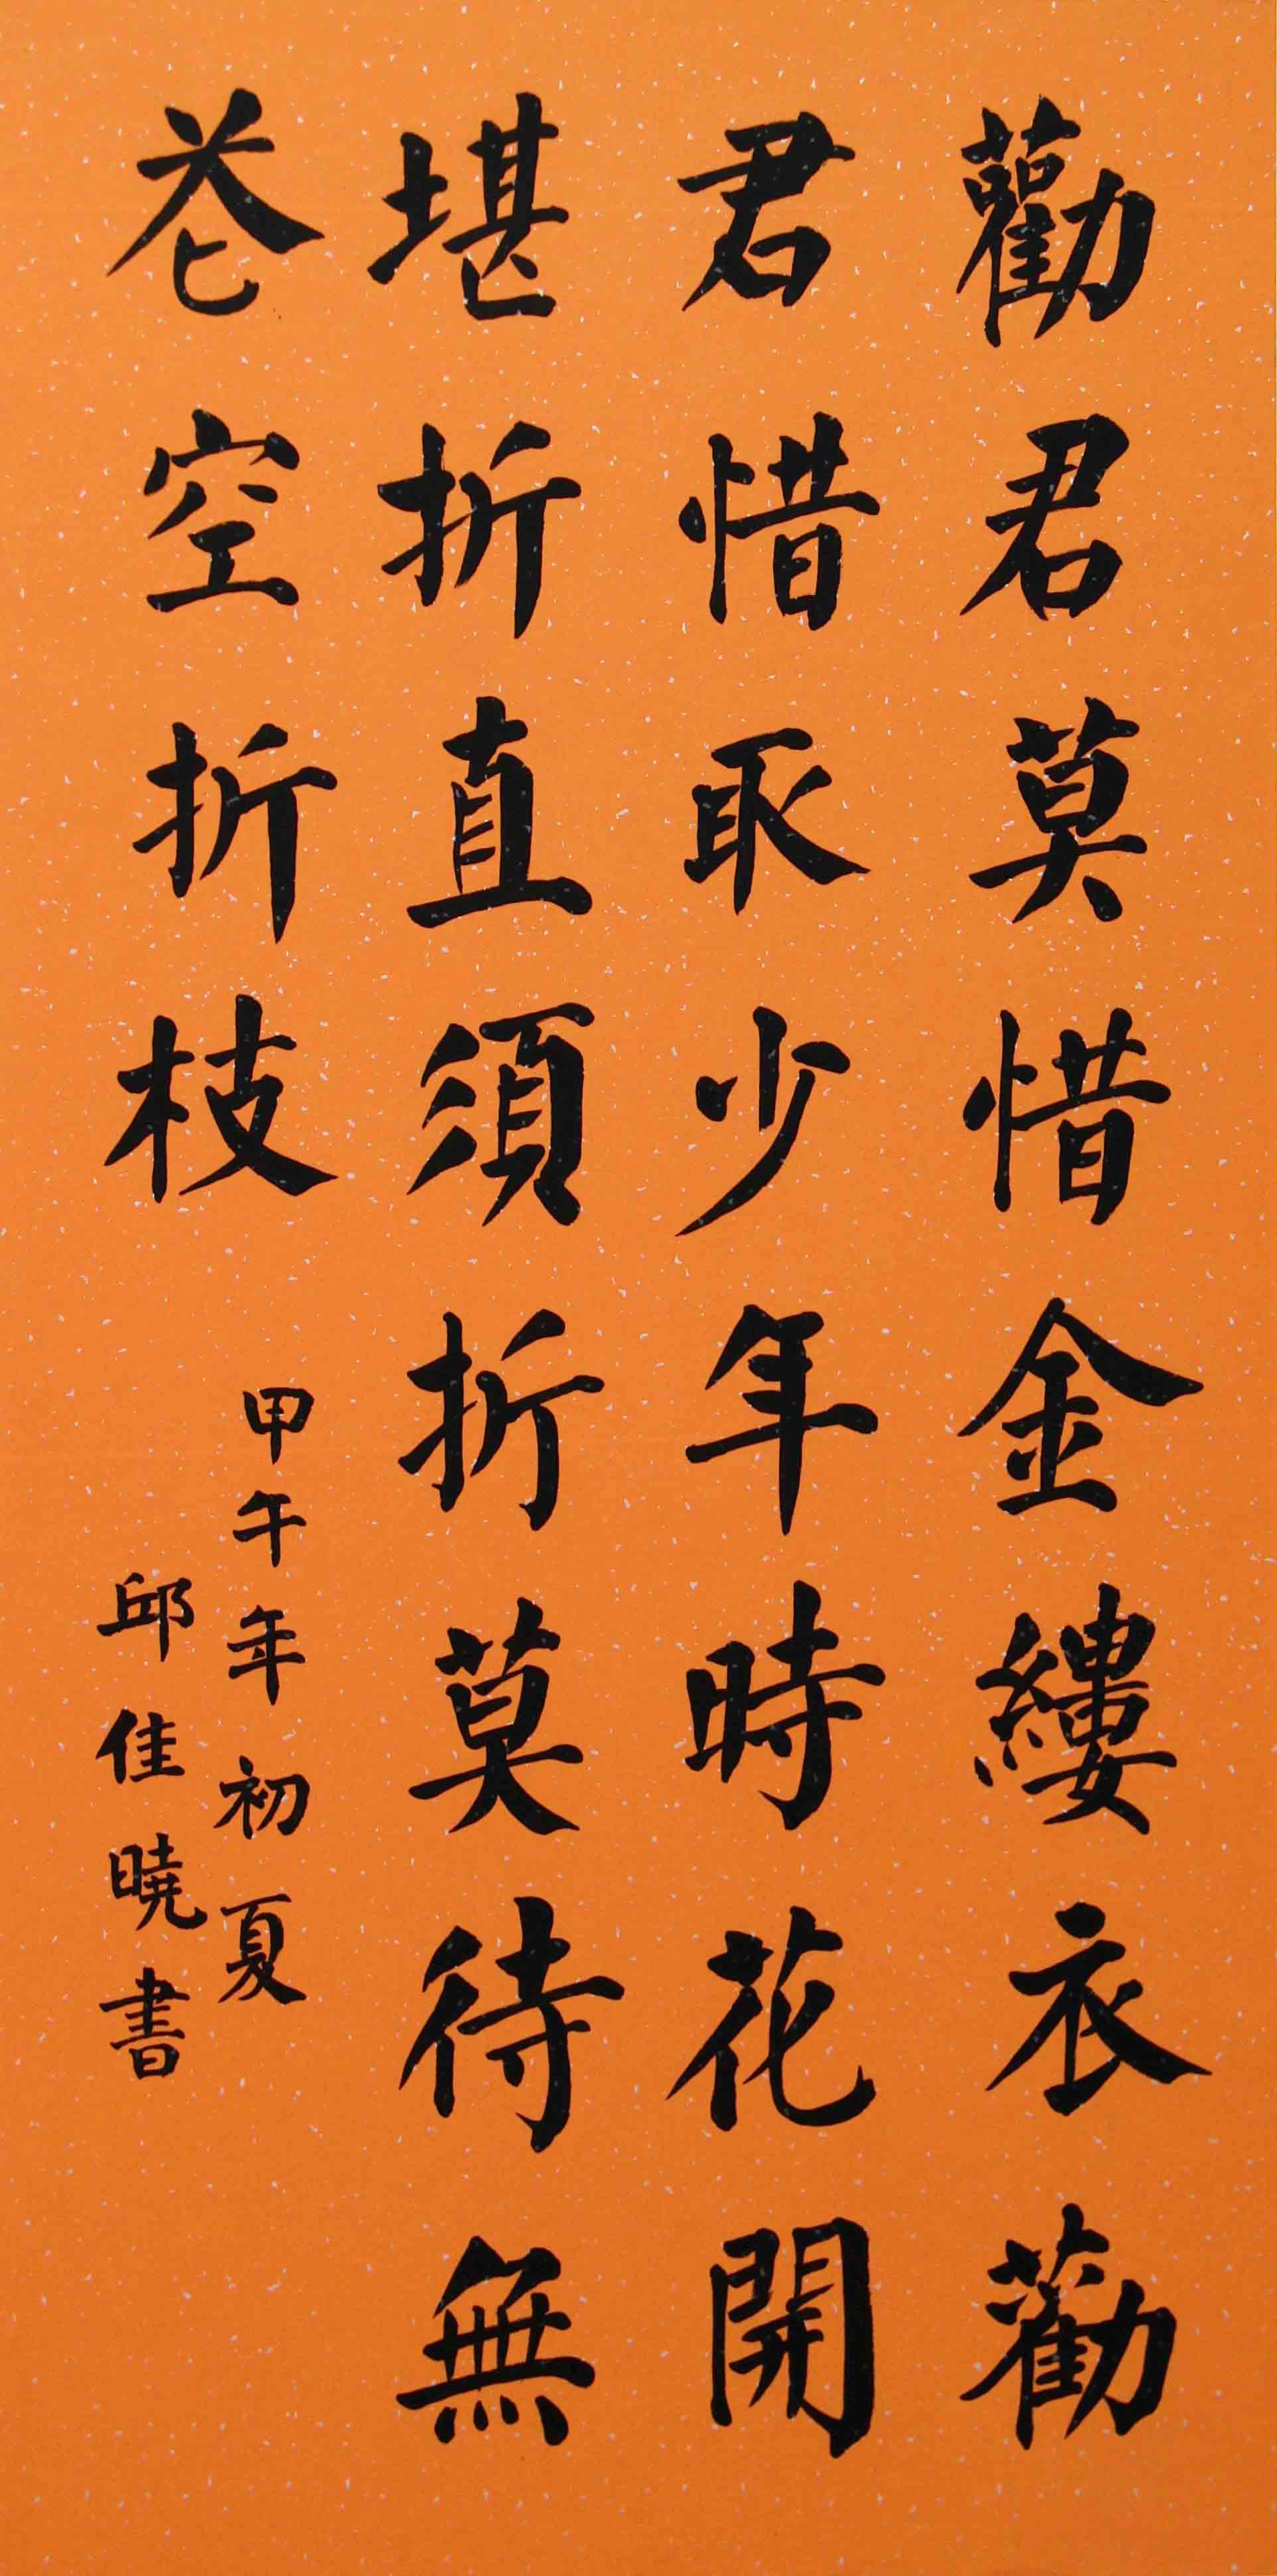 勸君莫惜金縷衣勸
君惜取少年時花開
堪折直須折莫待無
花空折枝
甲午年初夏
邱佳曉書